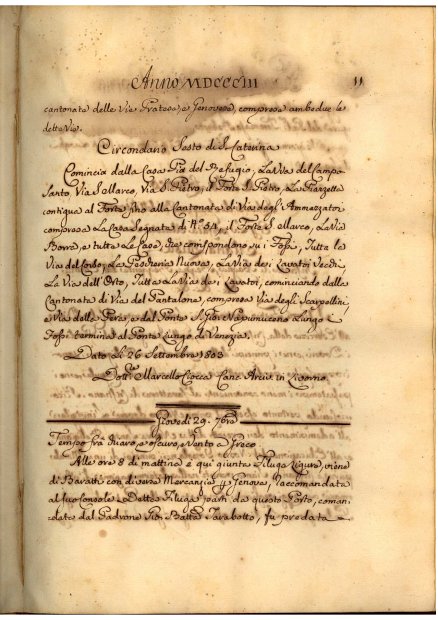 Anno MDCCCIII
11
cantonate delle Vie Pratese, e Genovese, comprese ambedue le
dette Vie.
Circondario Sesto di S. Caterina
Comincia dalla Casa Pia del Refugio, La Via del Campo
Santo, Via S. Marco, Via S. Pietro, il Forte S. Pietro, La Piazzetta
contigua al Forte, fino alla Cantonata di Via degli Ammazzatoi
compresa La Casa Segnata di N.° 54, il Forte S. Marco, La Via
Borra, e tutte Le Case, che corrispondono su i Fossi, Tutta la
Via del Corbo, La Pescheria Nuova, La Via dei Lavatoi Vecchi
La Via dell'Orto, Tutta La Via dei Lavatoi, cominciando dalla
Cantonata di Via del Pantalone, compresa Via degli Scarpellini,
e Via delle Pere, e dal Ponte S. Gio: Nepumuceno Lungo i
Fossi termina al Ponte Lungo di Venezia.
Dato Li 26 Settembre 1803
Dott. Marcello Ciocca Canc. in Livorno
Giovedì 29. 7bre
Tempo frà chiaro, e oscuro, Vento a Greco
Alle ore 8 di mattina è qui giunta Filuga Ligure, viene
di con diverse Mercanzie p Genova, raccomandata
al suo Console. Detta Filuga partì da questo Porto, coman
data dal Padrone Gio. Batta Tarabotto, fu predata